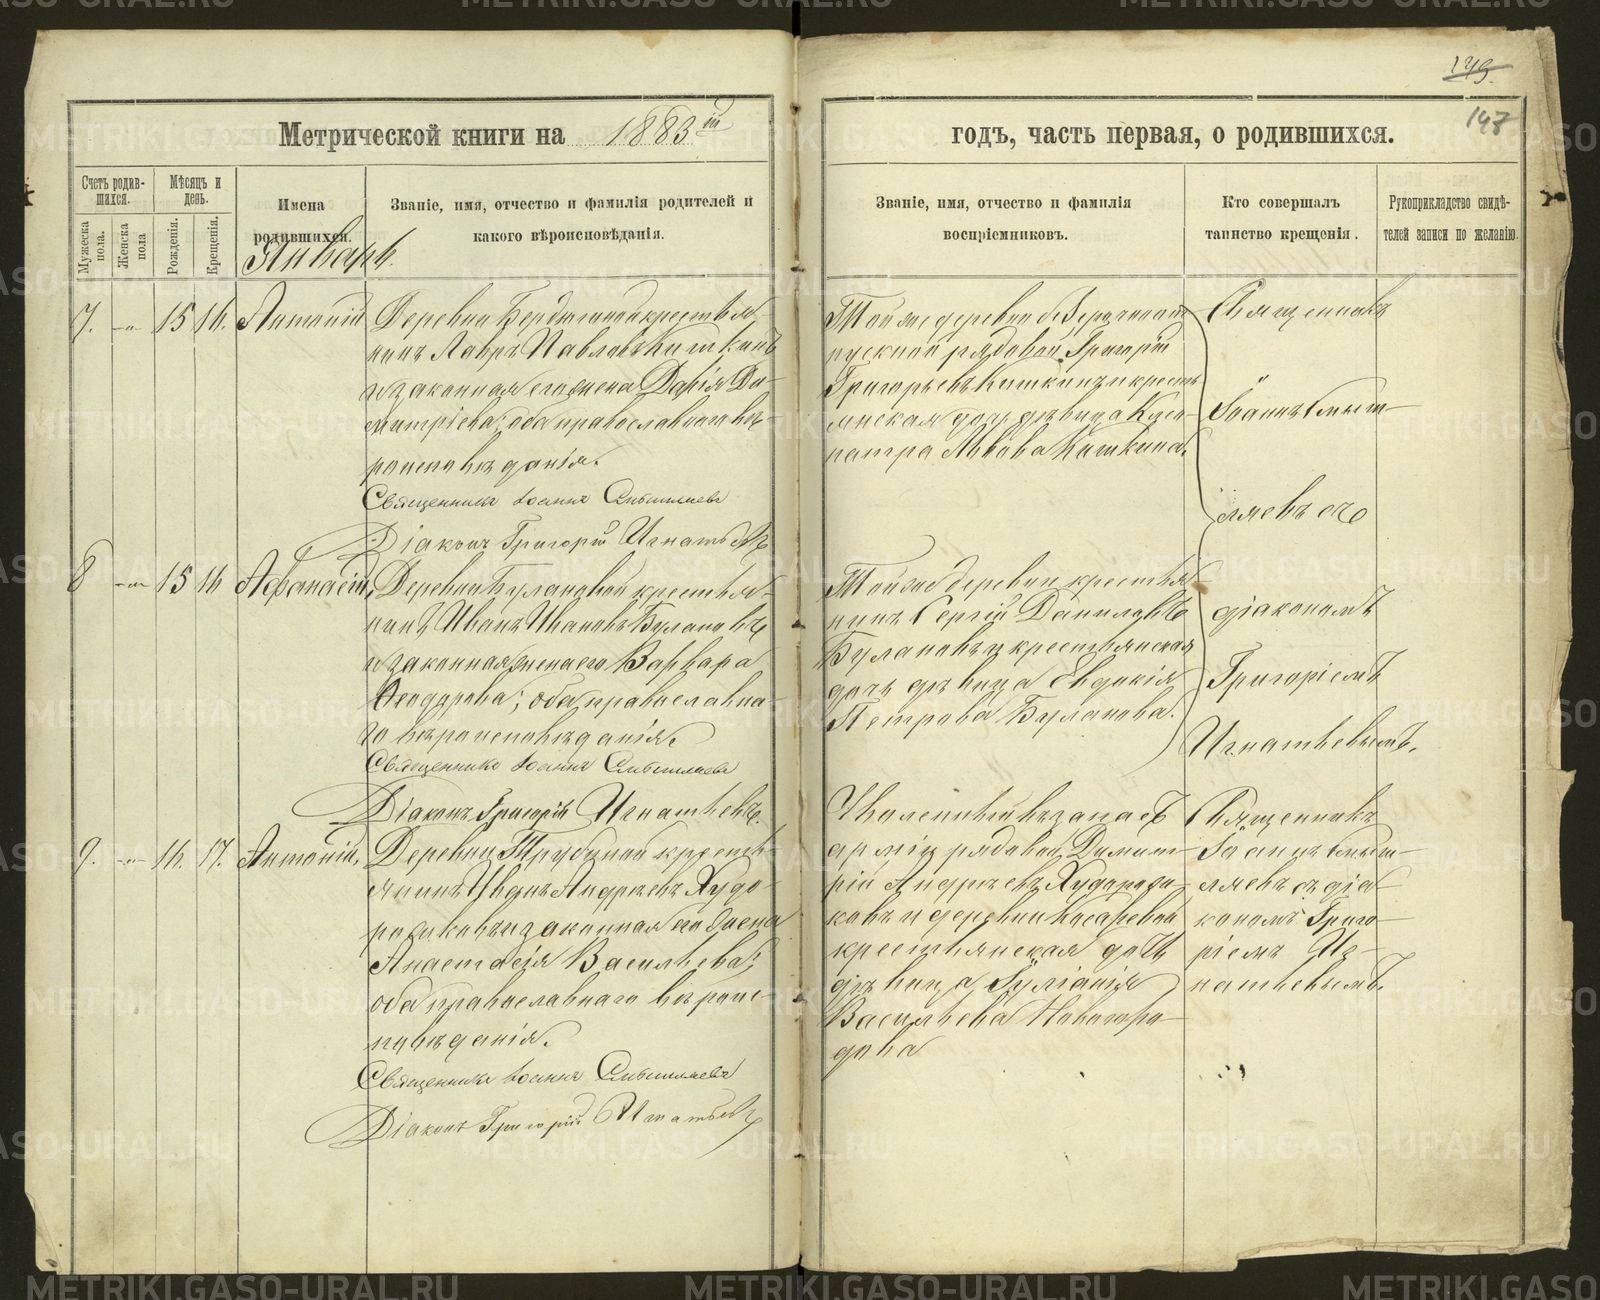 149.
147
Метрической книги на 1883 й
годъ, часть первая, о родившихся.
Счетъ родив-
шихся.
Мѣсяцъ и
день.
Мужеска
пола.
Женска
пола
Рожденія.
Крещенія.
Имена
родившихся.
Званіе, имя, отчество и фамилія родителей и
какого вѣроисповѣданія.
Званіе, имя, отчество и фамилія
воспріемниковъ.
Кто совершалъ
таинство крещенія.
Рукоприкладство свидѣ-
телей записи по желанію.
Январь.
7. 15 16. Антоній
Деревни крестья
нинъ Лавръ Павловъ Кишкинъ
и законная его жена Дарія Ди-
митріева; оба православнаго вѣ-
роисповѣданія.
Священникъ Іоаннъ Смышляевъ
Діаконъ Григорій Игнатьевъ
Той же деревни
рядовой Григорій
Григорьевъ Кишкинъ и кресть
янская дочь дѣвица Клео-
патра Львова Кишкина.
Священникъ
Іоаннъ Смыш-
ляевъ съ
діакономъ
Григоріемъ
Игнатьевымъ.
8 15 16 Афанасій,
Деревни Булановой крестья-
нинъ Иванъ Ивановъ Булановъ
и законная жена его Варвара
Ѳеодорова; оба православна-
го вѣроисповѣданія.
Священникъ Іоаннъ Смышляевъ
Діаконъ Григорій Игнатьевъ.
Той же деревни крестья
нинъ Сергій Даниловъ
Булановъ и крестьянская
дочь дѣвица Евдокія
Петрова Буланова.
9. 16. 17. Антоній,
Деревни Трубиной кресть-
янинъ Иванъ Андреевъ Худо-
рожковъ и законная его жена
Анастасія Васильева;
оба православнаго вѣроис-
повѣданія.
Священникъ Іоаннъ Смышляевъ
Діаконъ Григорій Игнатьевъ
Уволенный въ запасъ
арміи рядовой Димит-
рій Андреевъ Худорож-
ковъ и деревни Косаревой
крестьянская дочь
дѣвица Іуліанія
Васильева Новогоро-
дова
Священникъ
Іоаннъ Смыш-
ляевъ съ діа-
кономъ Григо-
ріемъ Иг-
натьевымъ.
METRIKI.GASO-URAL.RU